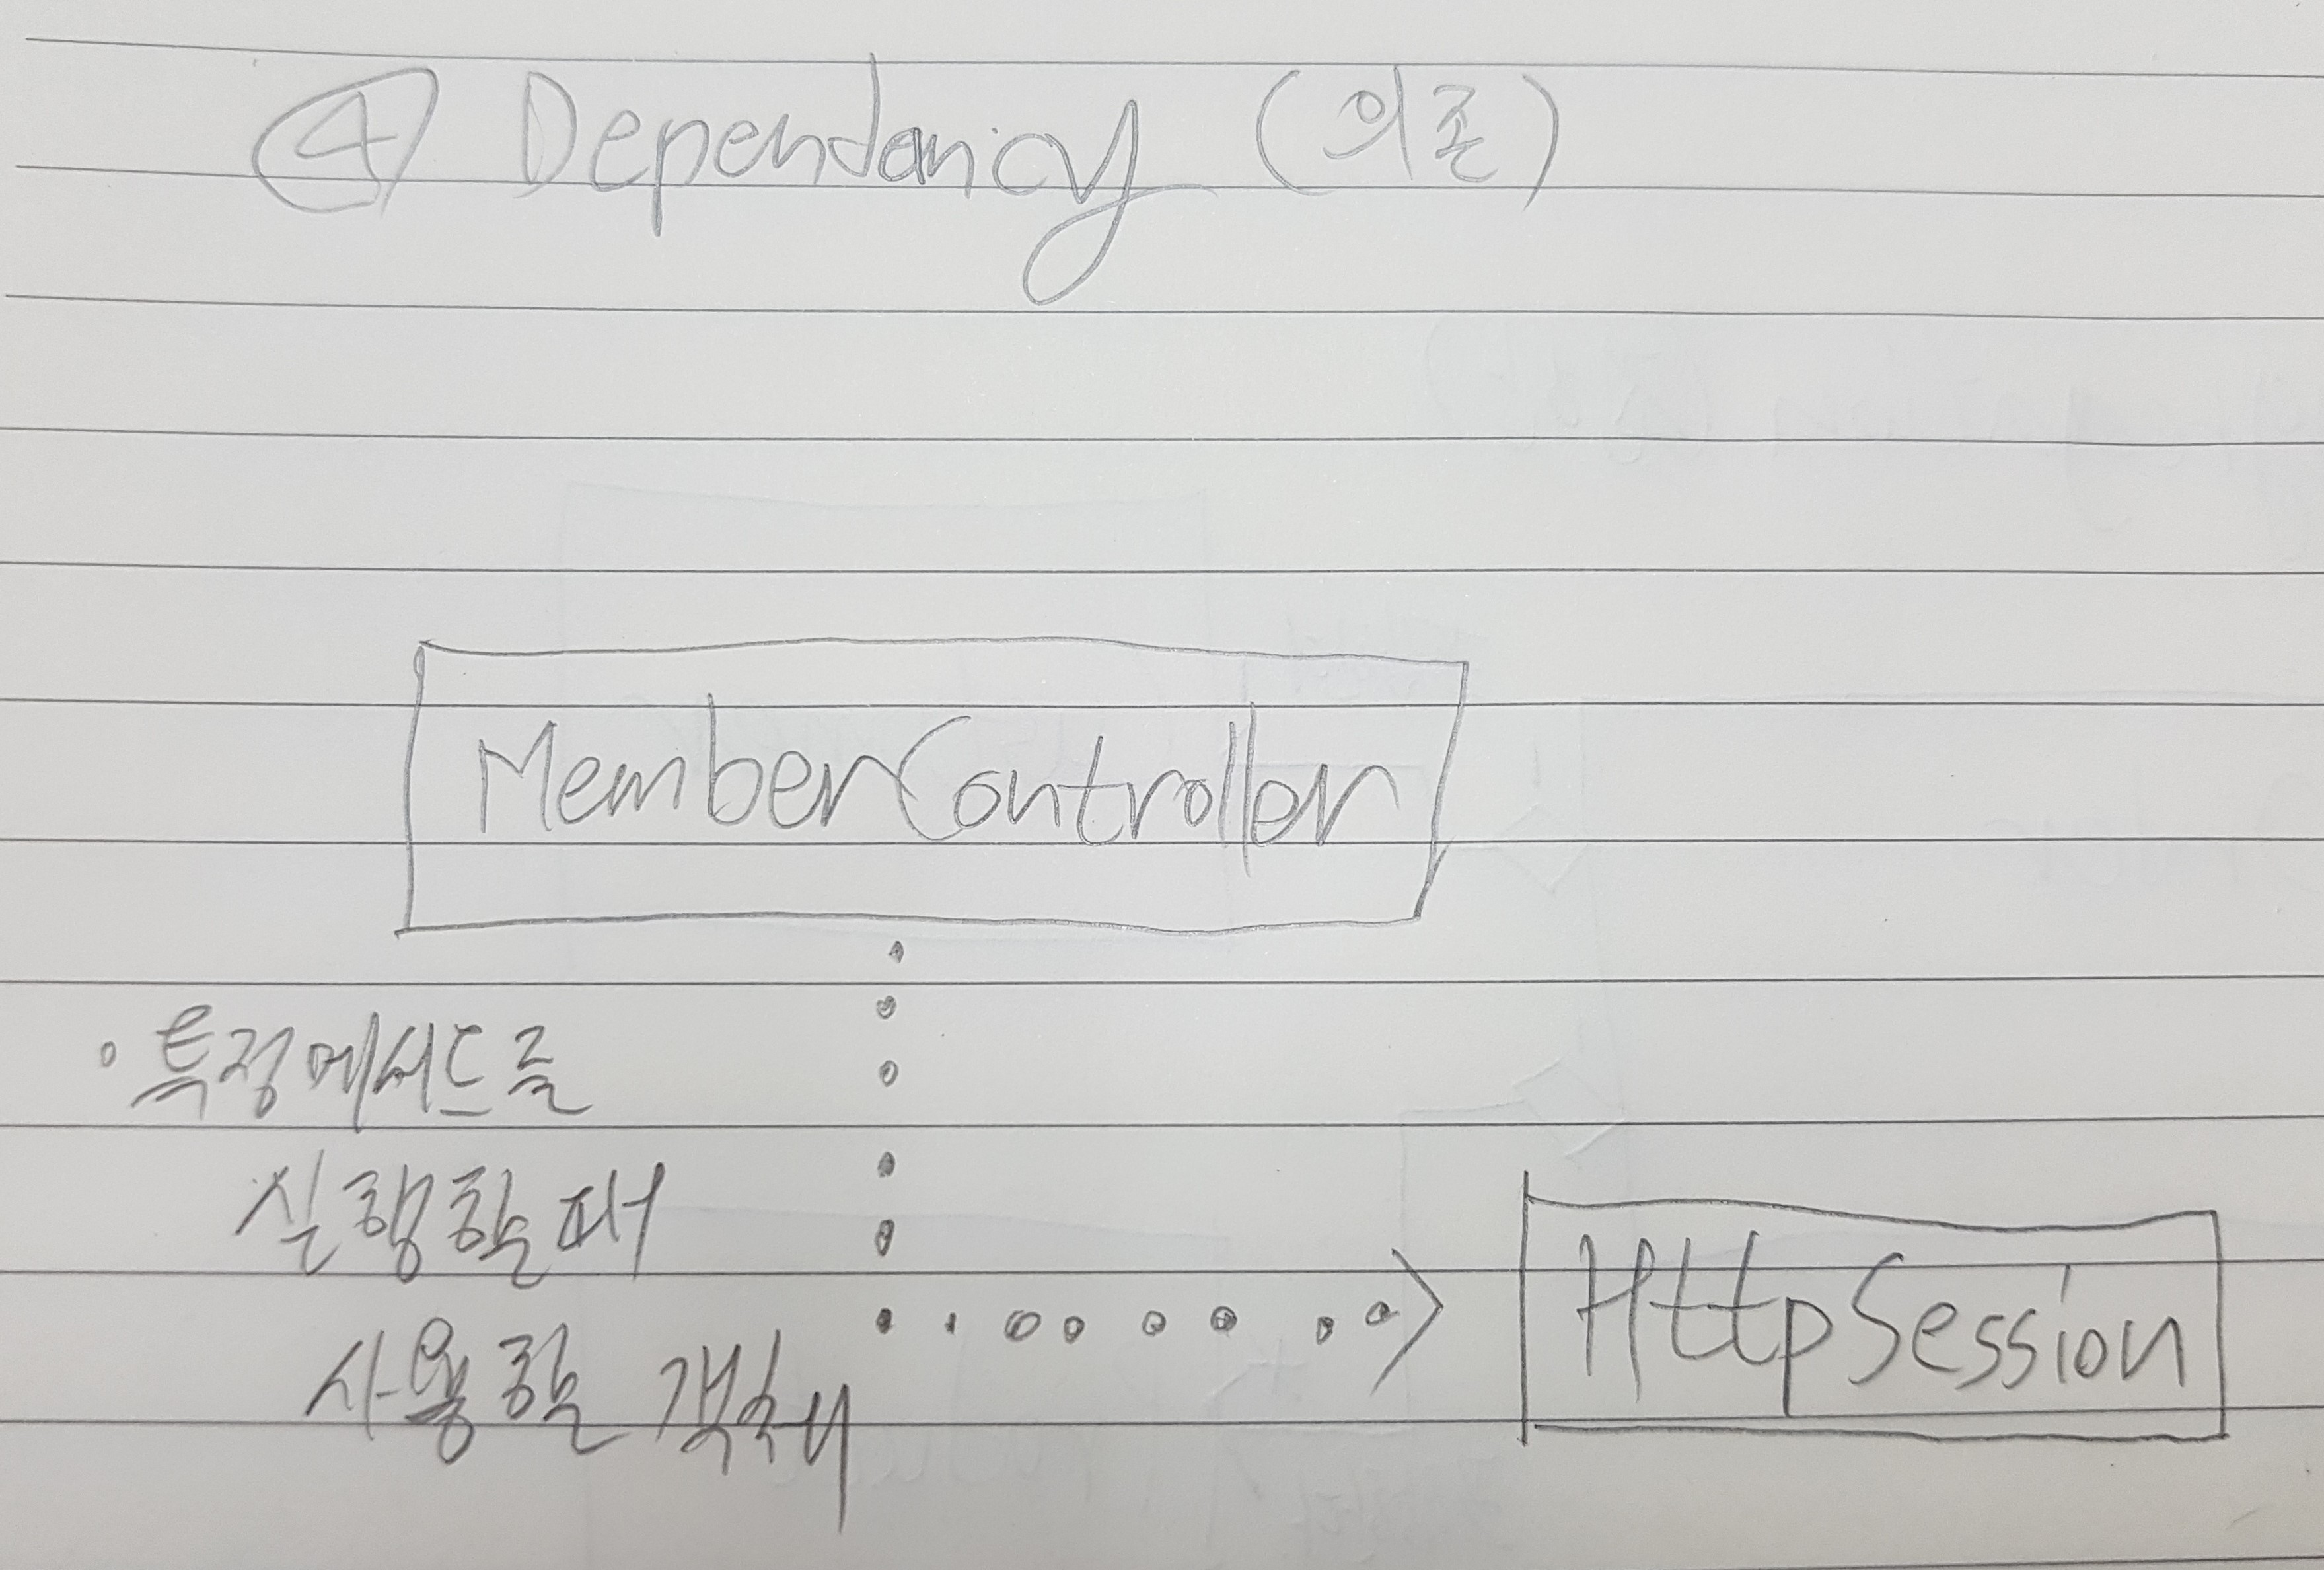 ④ Dependancy (의존)
MemberController
• 특정메서드를
실행할때
사용할 객체
HttpSession